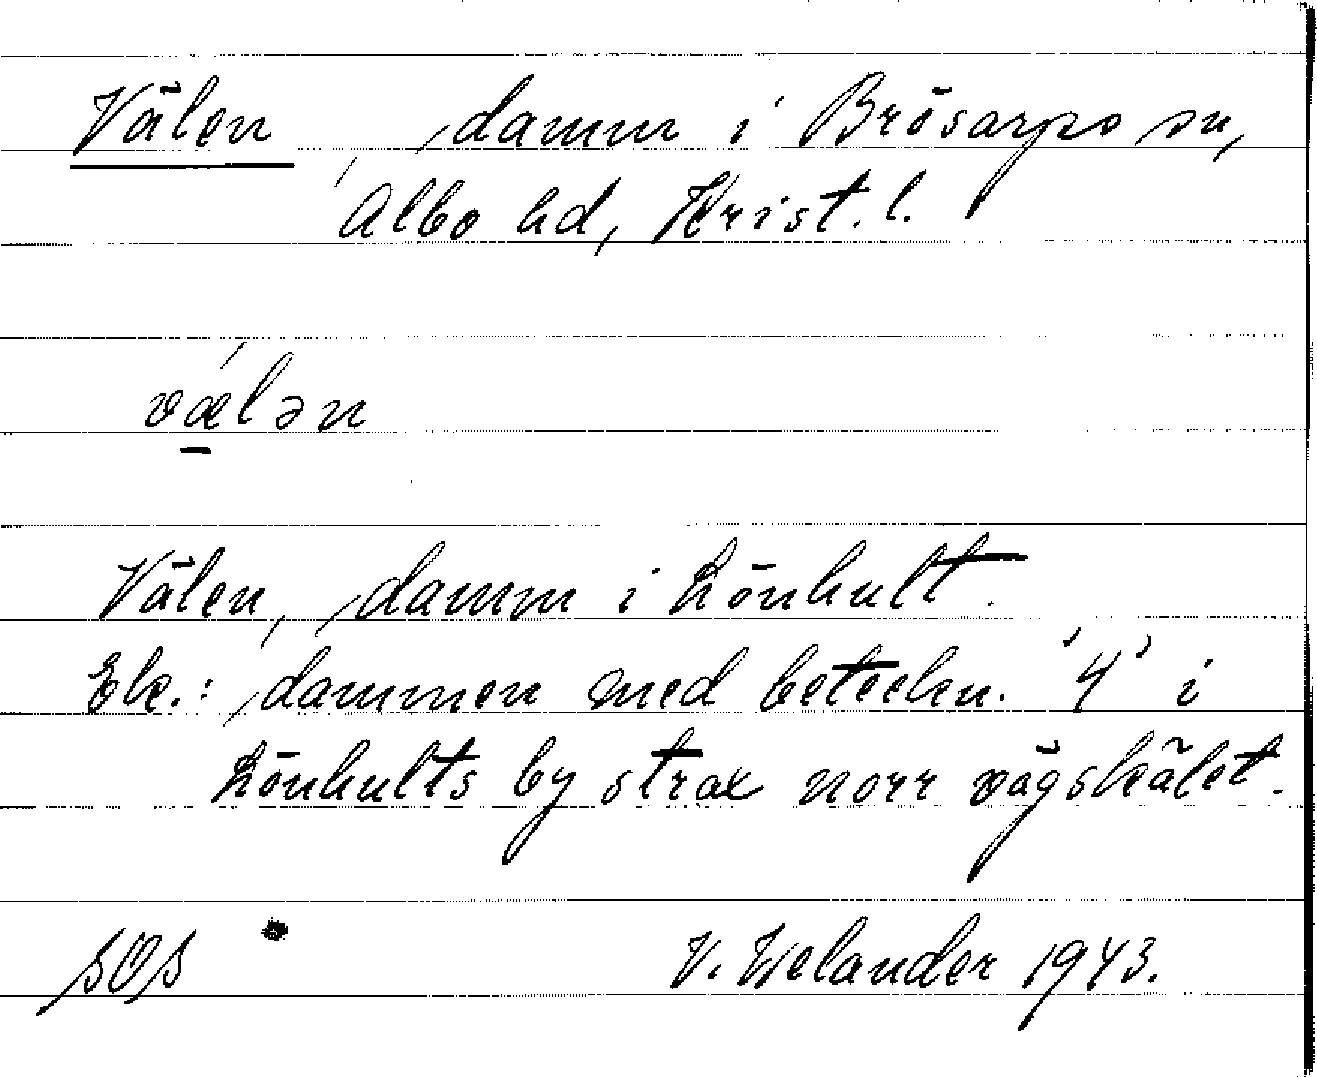 Välen, damm i Brösarps sn,
Albo hd, Krist. l.
vælən
Välen, damm i Lönhult.
Ek.: dammen med beteckn. '4' i
Lönhults by strax norr vägskälet.
SOS V. Welander 1943.